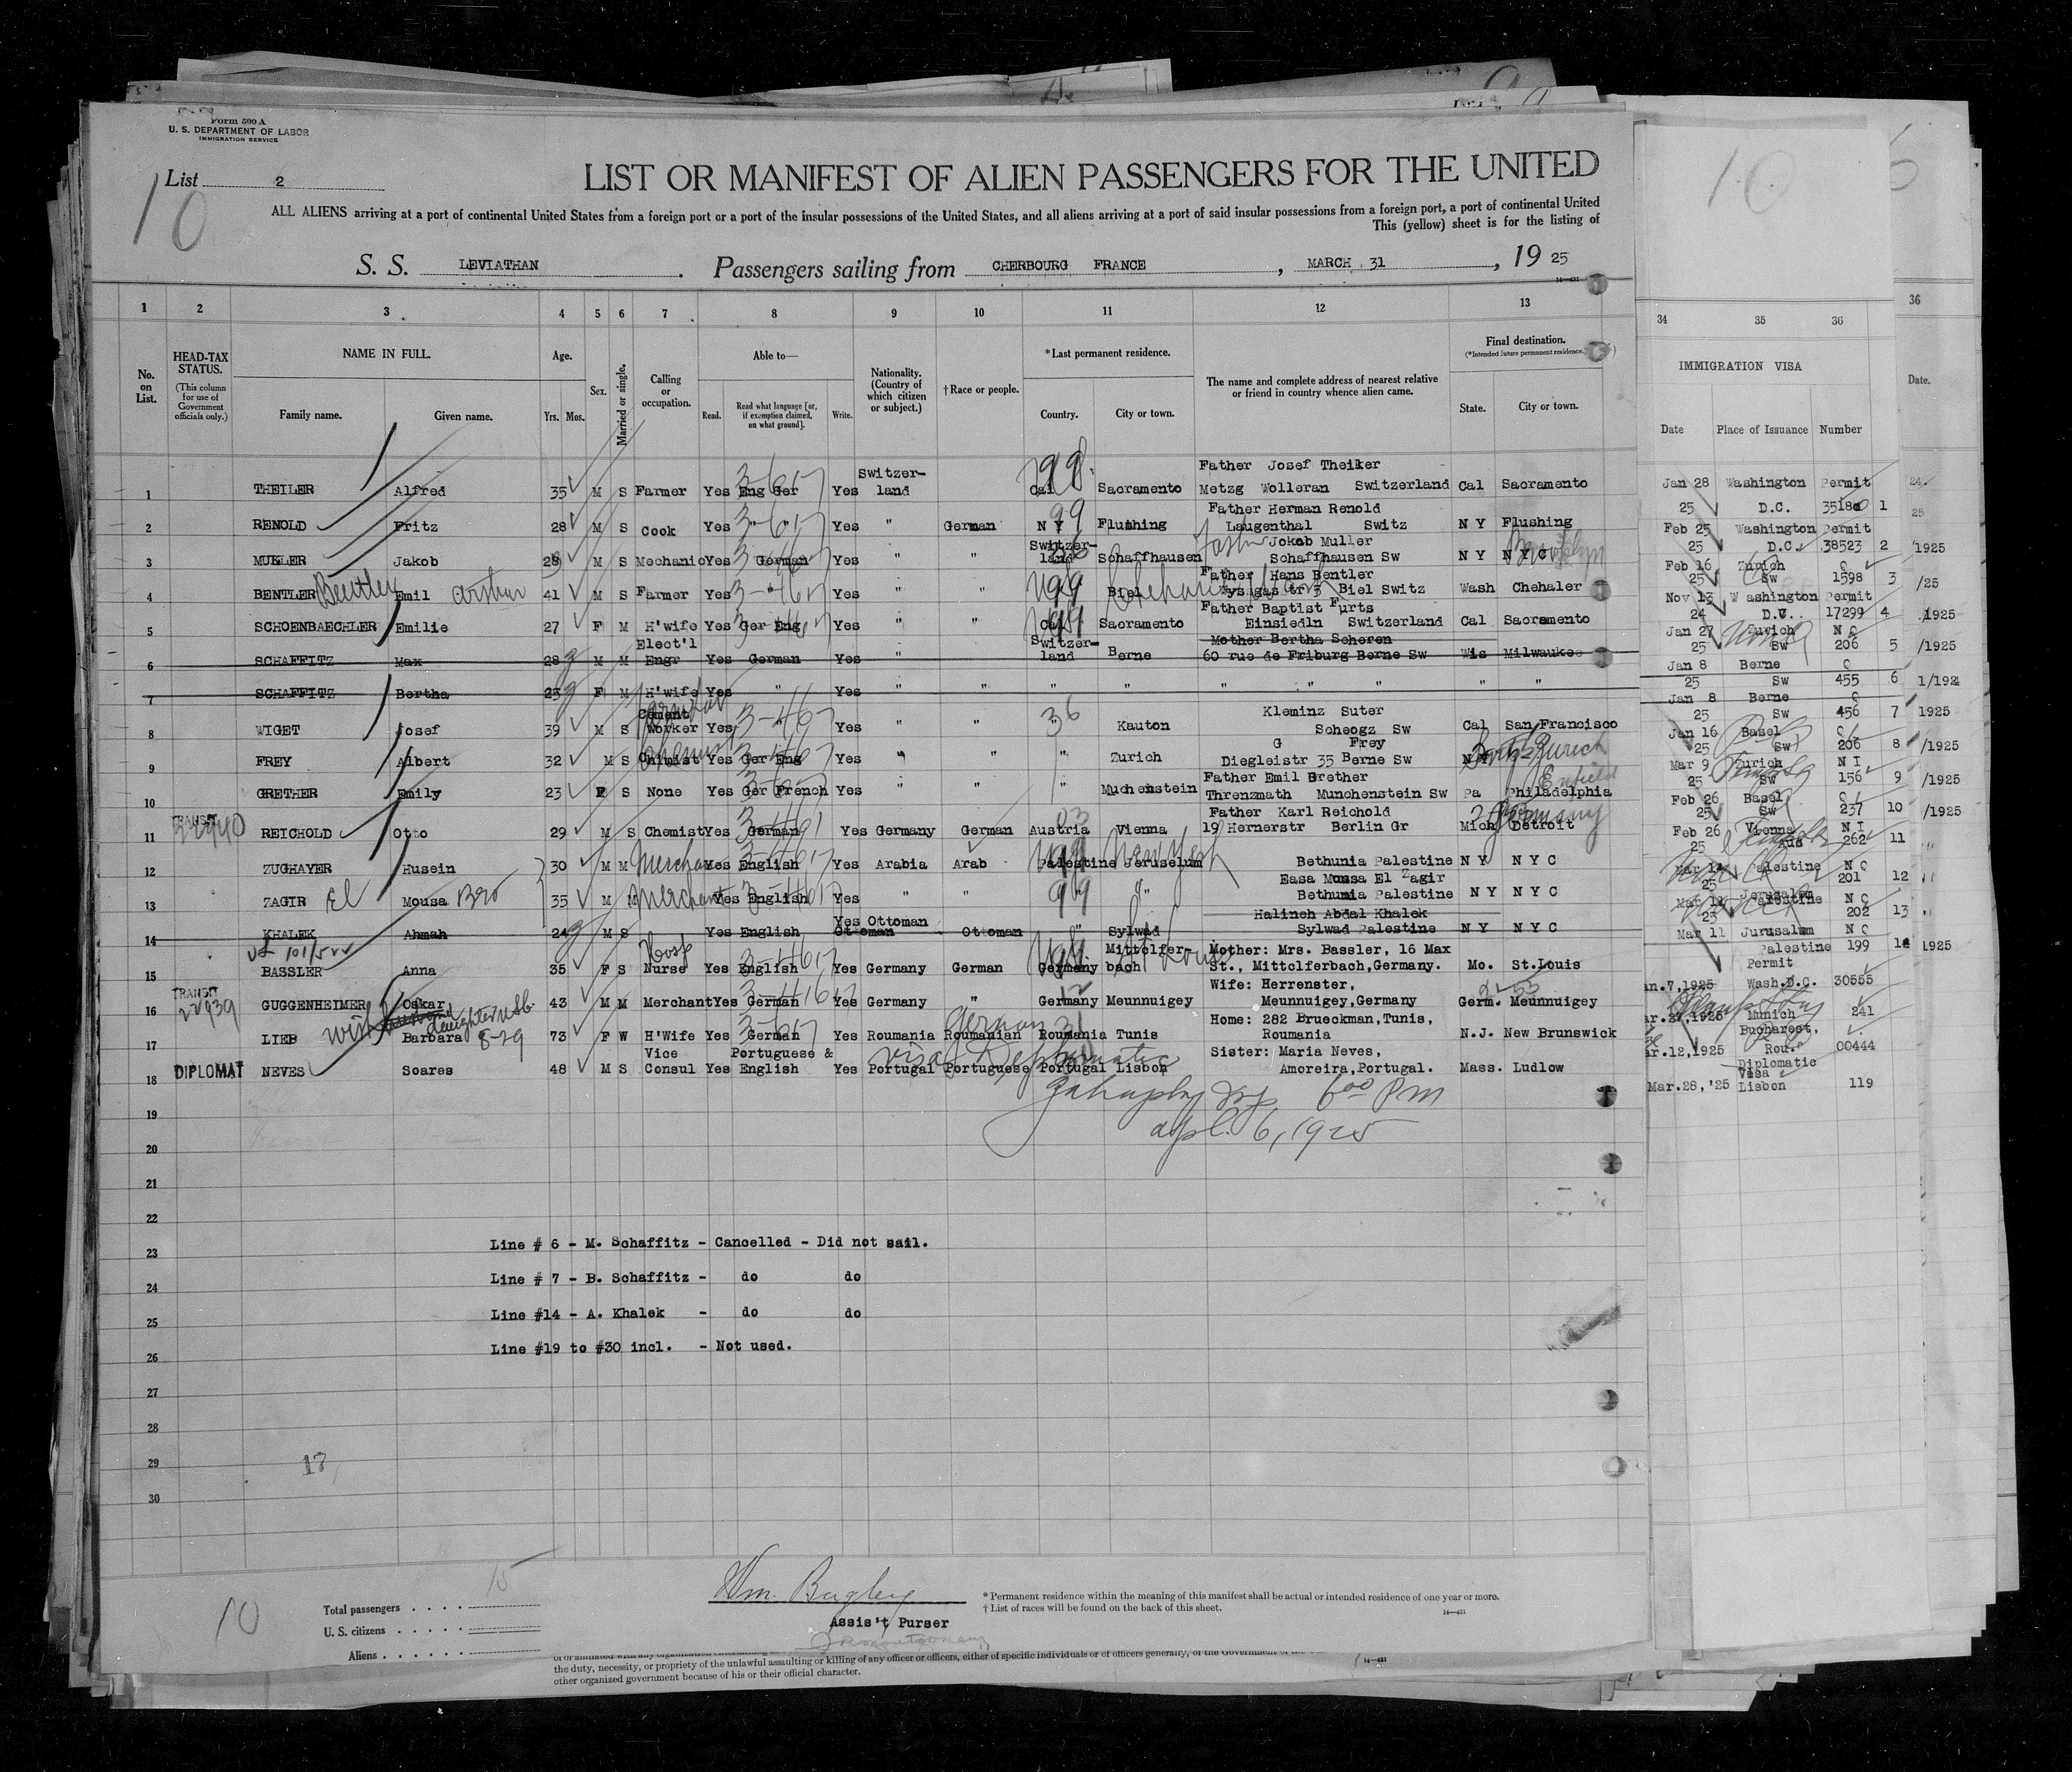 Form 500 A
U. S. DEPARTMENT OF LABOR
IMMIGRATION SERVICE
List 2
10
LIST OR MANIFEST OF ALIEN PASSENGERS FOR THE UNITED
ALL ALIENS arriving at a port of continental United States from a foreign port or a port of the insular possessions of the United States, and all aliens arriving at a port of said insular possessions from a foreign port, a port of continental United
This (yellow) sheet is for the listing of
S. S. LEVIATHAN . Passengers sailing from CHERBOURG FRANCE , MARCH 31 , 19 25
1 2 3 4 5 6 7 8 9 10 11 12 13 34 35 36
No. on List.
HEAD-TAX STATUS.
(This column for use of Government officials only.)
NAME IN FULL.
Family name. Given name.
Age.
Yrs. Mos.
Sex.
Married or single.
Calling or occupation.
Able to—
Read. Read what language [or, if exemption claimed, on what ground]. Write.
Nationality. (Country of which citizen or subject.)
†Race or people.
*Last permanent residence.
Country. City or town.
The name and complete address of nearest relative or friend in country whence alien came.
Final destination.
(*Intended future permanent residence.)
State. City or town.
IMMIGRATION VISA
Date Place of Issuance Number
36
Date.
Father Josef Theiler
1 THEILER Alfred 35 M S Farmer Yes Eng Ger Yes Switzer-land Cal Sacramento Metzg Wolleran Switzerland Cal Sacramento Jan 28 25 Washington D.C. Permit 35180 1
Father Herman Renold
2 RENOLD Fritz 28 M S Cook Yes " " Yes " German N Y Flushing Laugenthal Switz N Y Flushing Feb 25 25 Washington D.C. Permit 38523 2
Jokob Muller
3 MUKLER Jakob 28 M S Mechanic Yes German Yes " " Switzer-land Schaffhausen Schaffhausen Sw N Y N Y C Brooklyn Feb 16 25 Zurich Sw 1598 3
Father Hans Bentler
4 BENTLER Beutler Emil Arthur 41 M S Farmer Yes " Yes " " Biel Biel Switz Wash Chehaler Nov 13 24 Washington D.C. Permit 17299 4
Father Baptist Furts
5 SCHOENBAECHLER Emilie 27 F M H'wife Yes Ger Eng Yes " " Cal Sacramento Einsiedln Switzerland Cal Sacramento Jan 27 25 Zurich Sw 206 5
Mother Bertha Scheren
6 SCHAFFITZ Max 28 M M Elect'l Engr Yes German Yes " Switzer-land Berne 60 rue de Friburg Berne Sw Wis Milwaukee Jan 8 25 Berne Sw 455 6
7 SCHAFFITZ Bertha 23 F M H'wife Yes " Yes " " " " " " " " " Jan 8 25 Berne Sw 456 7
Kleminz Suter
8 WIGET Josef 39 M S Cement Worker Yes " Yes " " 36 Kauton Scheogz Sw Cal San Francisco Jan 16 25 Basel Sw 206 8
G Frey
9 FREY Albert 32 M S Chimist Yes Ger Eng Yes " " " Zurich Diegleistr 35 Berne Sw Mar 9 25 Zurich Sw N I 156 9
Father Emil Brether
10 GRETHER Emily 23 F S None Yes Ger French Yes " " " Muchenstein Threnzmath Munchenstein Sw Pa Philadelphia Feb 26 25 Basel Sw 237 10
Father Karl Reichold
TRANSIT
11 REICHOLD Otto 29 M S Chemist Yes German Yes Germany German Austria Vienna 19 Hernerstr Berlin Gr Mich Detroit Germany Feb 26 25 Vienna Aus N I 262 11
12 ZUGHAYER Husein 30 M M Merchant Yes English Yes Arabia Arab Palestine Jeruselum Bethunia Palestine N Y N Y C Mar 14 25 Palestine Jerusalem N Q 201 12
Easa Moussa El Zagir
13 ZAGIR El Mousa Bro 35 M M Merchant Yes English Yes " " " " Bethumia Palestine N Y N Y C Mar 11 Palestine N Q 202 13
Halineh Abdal Khalek
14 KHALEK Ahmah 24 M S Yes English Yes Ottoman Ottoman Ottoman " Sylwad Sylwad Palestine N Y N Y C Mar 11 Jerusalem Palestine N Q 199 14
15 BASSLER Anna 35 F S Hosp Nurse Yes English Yes Germany German Germany Mittclfer-bach Mother: Mrs. Bassler, 16 Max St., Mittclferbach,Germany. Mo. St.Louis Jan.7,1925 Permit Wash.D.C. 30555
TRANSIT
22939
16 GUGGENHEIMER Oskar 43 M M Merchant Yes German Yes Germany " Germany Meunnuigey Wife: Herrenster, Meunnuigey,Germany Germ. Meunnuigey Mar.27,1925 Munich 241
17 LIEB Barbara 73 F W H'Wife Yes German Yes Roumania Roumanian German Roumania Tunis Home: 282 Brueckman,Tunis, Roumania N.J. New Brunswick Mar.12,1925 Bucharest, Rou. 00444
18 DIPLOMAT NEVES Soares 48 M S Vice Consul Yes Portuguese & English Yes Portugal Portuguese Portugal Lisbon Sister: Maria Neves, Amoreira,Portugal. Mass. Ludlow Mar.28,'25 Diplomatic Visa Lisbon 119
Visa Diplomatic
6 00 PM
Apl. 6, 1925
19
20
21
22
23
24
25
26
27
28
29
30
Line # 6 - M. Schaffitz - Cancelled - Did not sail.
Line # 7 - B. Schaffitz - do do
Line #14 - A. Khalek - do do
Line #19 to #30 incl. - Not used.
17
15
10
Total passengers
U. S. citizens
Aliens
Wm. Bugley
Assis't Purser
* Permanent residence within the meaning of this manifest shall be actual or intended residence of one year or more.
† List of races will be found on the back of this sheet.
14—431
the duty, necessity, or propriety of the unlawful assaulting or killing of any officer or officers, either of specific individuals or of officers generally, of the Government of the
other organized government because of his or their official character.